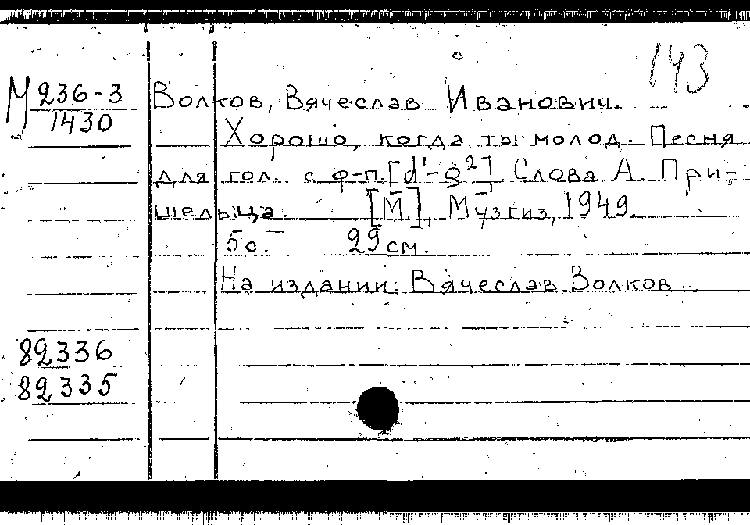 143
М 236-3
1430
Волков, Вячеслав Иванович.
Хорошо, когда ты молод. Песня
для гол. с ф-п. [d¹-g²] Слова А. При-
шельца. [М.], Музгиз, 1949.
5 с. 29 см.
На издании: Вячеслав Волков.
82336
82335